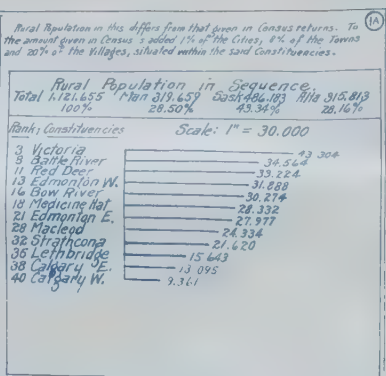 1A
Rural Population in this differs from that given in Census returns. To
the amount given in Census is added 1% of the Cities, 8% of the Towns
and 20% of the Villages, situated within the said Constituencies.
Rural Population in Sequence
Total 1.121.655 Man 319.659 Sask 486.183 Alta 315.813
100% 28.50% 43.34% 28.16%
Rank; Constituencies Scale: 1" = 30.000
3 Victoria 43 304
8 Battle River 34.564
11 Red Deer 33.224
13 Edmonton W. 31.888
16 Bow River 30.274
18 Medicine Hat 28.332
21 Edmonton E. 27.977
28 Macleod 24.334
32 Strathcona 21.620
36 Lethbridge 15 643
38 Calgary E. 13 095
40 Calgary W. 9.361